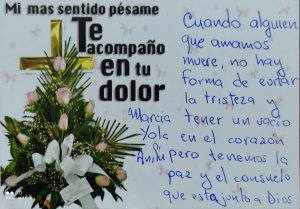 Mi mas sentido pésame
Te
acompaño
en tu
dolor
Cuando alguien
que amamos
muere, no hay
forma de evitar
la tristeza y
tener un vacio
en el corazon
pero tenemos la
paz y el consuelo
que esta junto a Dios
Marcia
Yola